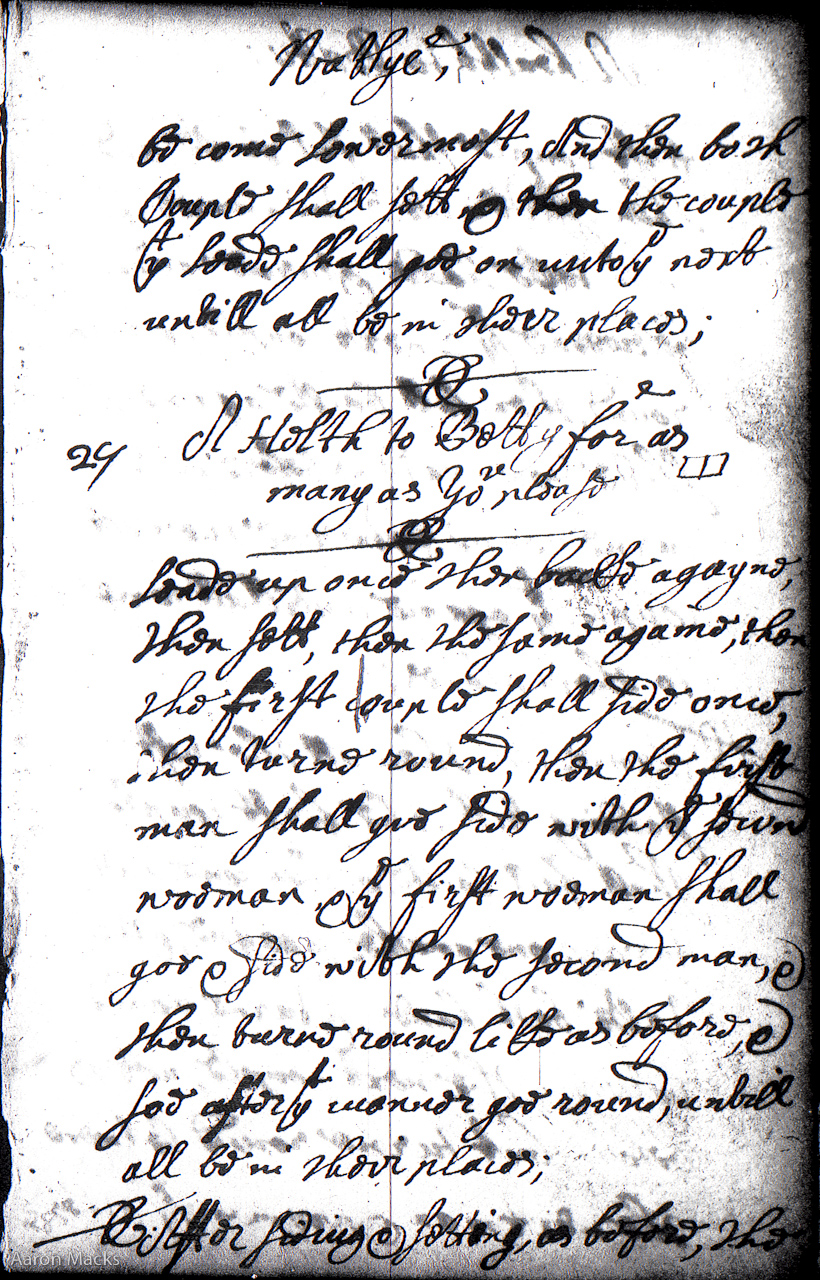 be come Lowermost, And then both
Couple shall sett, & then the couple
yt Leade shall goe on unto ye next
untill all be in their places;
A Helth to Betty for as
29
many as You please
Leade up once then backe agayne,
then sett, then the same againe, then
the first couple shall side once,
then turne round, then the first
man shall goe side with ye second
woeman, & ye first woeman shall
goe & side with the second man, &
then turne round like as before, &
soe after yt manner goe round, untill
all be in their places;
After siding & setting, as before, the
Aaron Macks